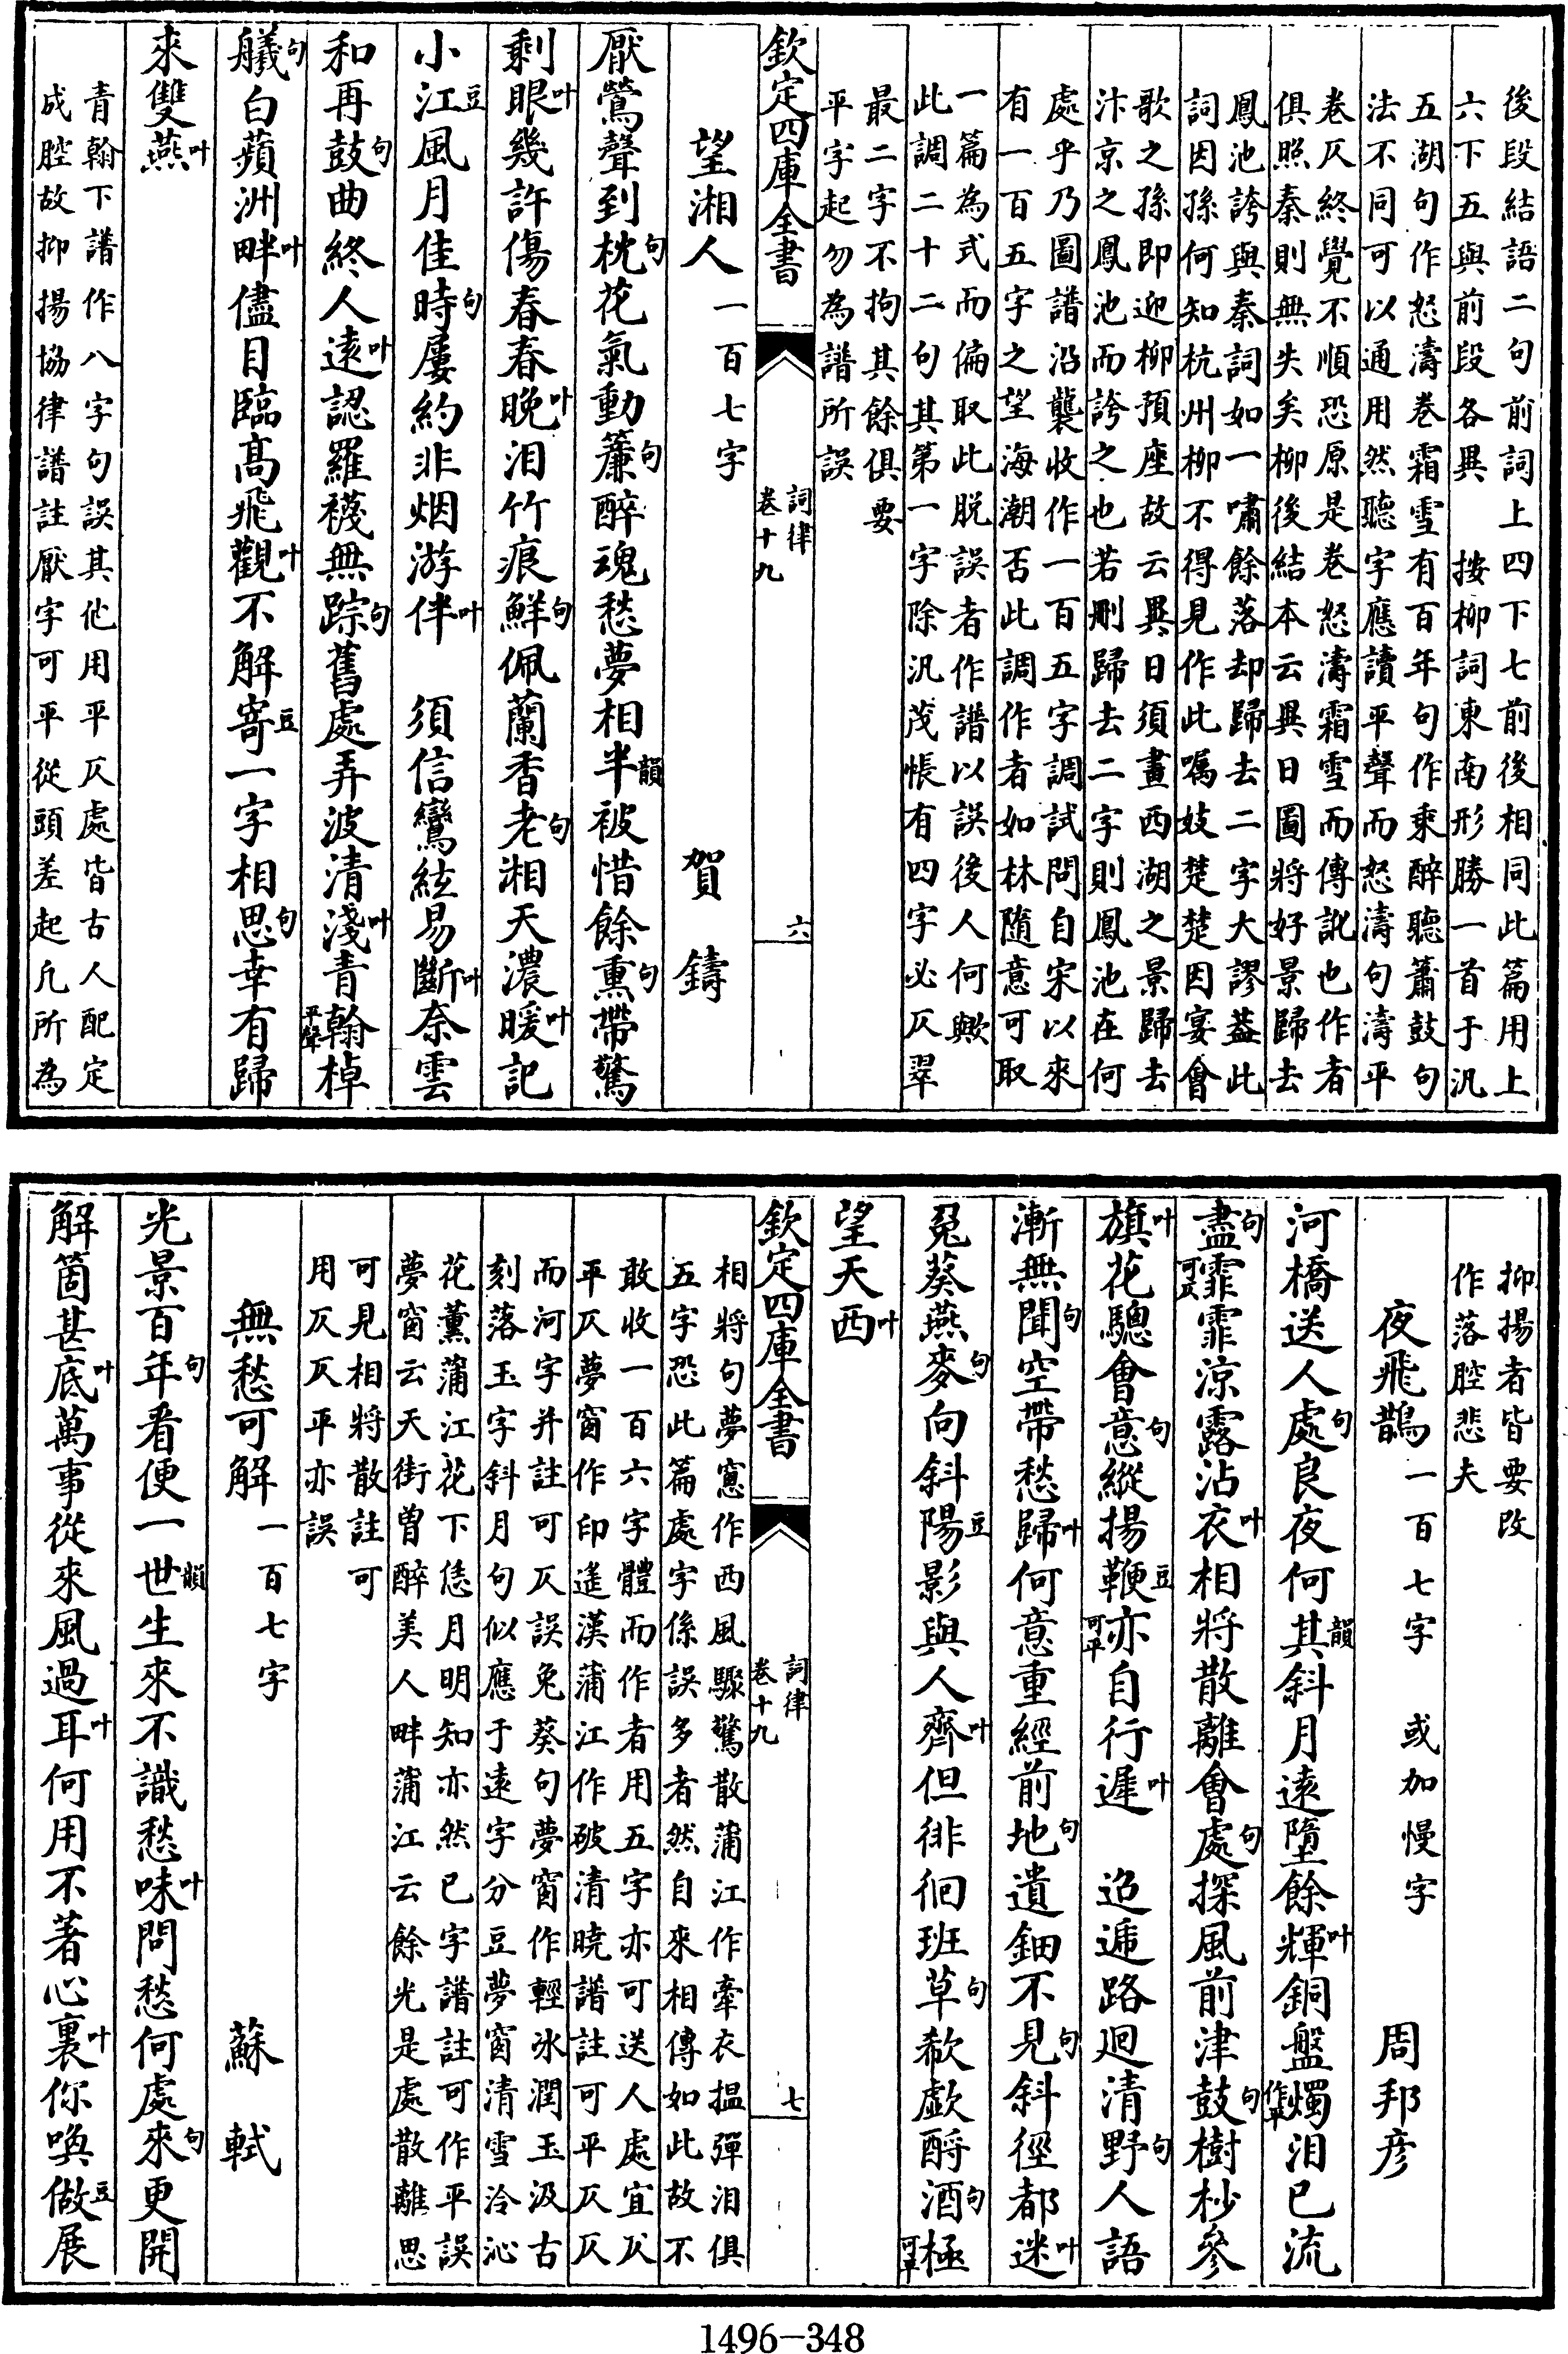 後段結語二句前詞上四下七前後相同此篇用上
六下五與前段各異　按柳詞東南形勝一首于汎
五湖句作怒濤卷霜雪有百年句作乘醉聽簫鼓句
法不同可以通用然聽字應讀平聲而怒濤句濤平
卷仄終覺不順恐原是卷怒濤霜雪而傳訛也作者
俱照秦則無失矣柳後結本云異日圖將好景歸去
鳳池誇與秦詞如一嘯餘落却歸去二字大謬葢此
詞因孫何知杭州柳不得見作此囑妓楚楚因宴會
歌之孫即迎柳預座故云異日須畫西湖之景歸去
汴京之鳳池而誇之也若刪歸去二字則鳳池在何
處乎乃圖譜沿襲收作一百五字調試問自宋以來
有一百五字之望海潮否此調作者如林隨意可取
一篇為式而偏取此脱誤者作譜以誤後人何歟
此調二十二句其第一字除汎茂帳有四字必仄翠
最二字不拘其餘俱要
平字起勿為譜所誤
欽定四庫全書
詞律
卷十九
六
望湘人　一百七字　賀　鑄
厭鶯聲到枕句花氣動簾句醉魂愁夢相半韻被惜餘熏句帶驚
剩眼叶幾許傷春春晚叶泪竹痕鮮句佩蘭香老句湘天濃暖叶記
小江豆風月佳時句屢約非烟游伴叶　須信鸞絃易斷叶奈雲
和再鼓句曲終人遠叶認羅襪無踪句舊處弄波清淺叶青翰平聲棹
艤句白蘋洲畔叶儘目臨高飛觀叶不解寄豆一字相思句幸有歸
來雙燕叶
青翰下譜作八字句誤其他用平仄處皆古人配定
成腔故抑揚協律譜註厭字可平從頭差起凡所為
抑揚者皆要改
作落腔悲夫
夜飛鵲　一百七字　或加慢字　周邦彦
河橋送人處句良夜何其韻斜月遠墮餘輝叶銅盤燭作平泪已流
盡句霏可仄霏涼露沾衣叶相將散離會處句探風前津鼓句樹杪參
旗叶花驄會意句縱揚鞭豆亦可平自行遲叶　迢遞路迴清野句人語
漸無聞句空帶愁歸叶何意重經前地句遺鈿不見句斜徑都迷叶
兔葵燕麥句向斜陽豆影與人齊叶但徘徊班草句欷歔酹酒句極可平
望天西叶
欽定四庫全書
詞律
卷十九
七
相將句夢窻作西風驟驚散蒲江作牽衣揾彈泪俱
五字恐此篇處字係誤多者然自來相傳如此故不
敢收一百六字體而作者用五字亦可送人處宜仄
平仄夢窗作印遙漢蒲江作破清曉譜註可平仄仄
而河字并註可仄誤兔葵句夢窗作輕冰潤玉汲古
刻落玉字斜月句似應于遠字分豆夢窗清雪冷沁
花薰蒲江花下恁月明知亦然已字譜註可作平誤
夢窗云天街曾醉美人畔蒲江云餘光是處散離思
可見相將散註可
用仄仄平亦誤
無愁可解　一百七字　蘇　軾
光景百年句看便一世韻生來不識愁味叶問愁何處來句更開
解箇甚底叶萬事從來風過耳叶何用不著心裏叶你喚做豆展
1496-348